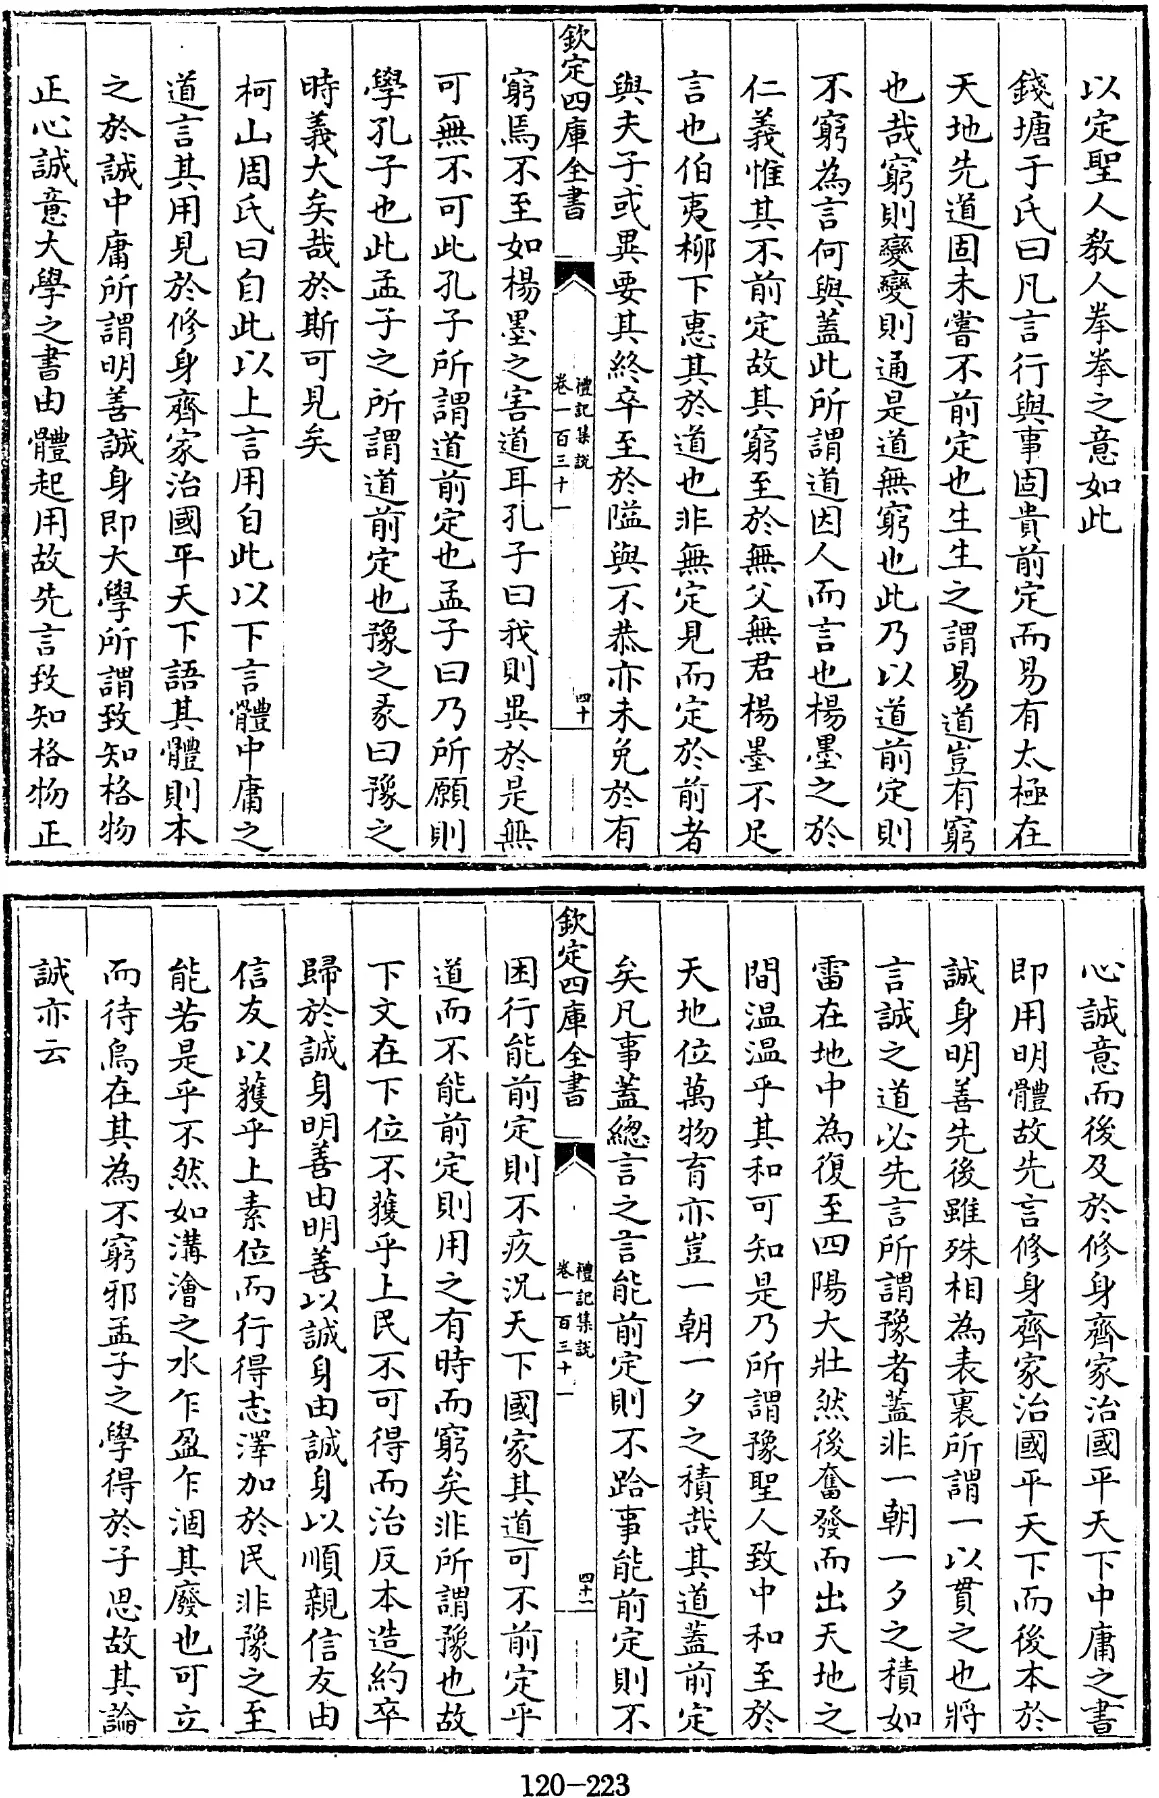 以定聖人教人拳拳之意如此
錢塘于氏曰凡言行與事固貴前定而易有太極在
天地先道固未嘗不前定也生生之謂易道豈有窮
也哉窮則變變則通是道無窮也此乃以道前定則
不窮為言何與蓋此所謂道因人而言也楊墨之於
仁義惟其不前定故其窮至於無父無君楊墨不足
言也伯夷柳下惠其於道也非無定見而定於前者
與夫子或異要其終卒至於隘與不恭亦未免於有
欽定四庫全書
禮記集説
卷一百三十一
四十
窮焉不至如楊墨之害道耳孔子曰我則異於是無
可無不可此孔子所謂道前定也孟子曰乃所願則
學孔子也此孟子之所謂道前定也豫之彖曰豫之
時義大矣哉於斯可見矣
柯山周氏曰自此以上言用自此以下言體中庸之
道言其用見於修身齊家治國平天下語其體則本
之於誠中庸所謂明善誠身即大學所謂致知格物
正心誠意大學之書由體起用故先言致知格物正
心誠意而後及於修身齊家治國平天下中庸之書
即用明體故先言修身齊家治國平天下而後本於
誠身明善先後雖殊相為表裏所謂一以貫之也將
言誠之道必先言所謂豫者蓋非一朝一夕之積如
雷在地中為復至四陽大壯然後奮發而出天地之
間温温乎其和可知是乃所謂豫聖人致中和至於
天地位萬物育亦豈一朝一夕之積哉其道蓋前定
矣凡事蓋總言之言能前定則不跲事能前定則不
欽定四庫全書
禮記集説
卷一百三十一
四十一
困行能前定則不疚況天下國家其道可不前定乎
道而不能前定則用之有時而窮矣非所謂豫也故
下文在下位不獲乎上民不可得而治反本造約卒
歸於誠身明善由明善以誠身由誠身以順親信友由
信友以獲乎上素位而行得志澤加於民非豫之至
能若是乎不然如溝澮之水乍盈乍涸其廢也可立
而待烏在其為不窮邪孟子之學得於子思故其論
誠亦云
120-223